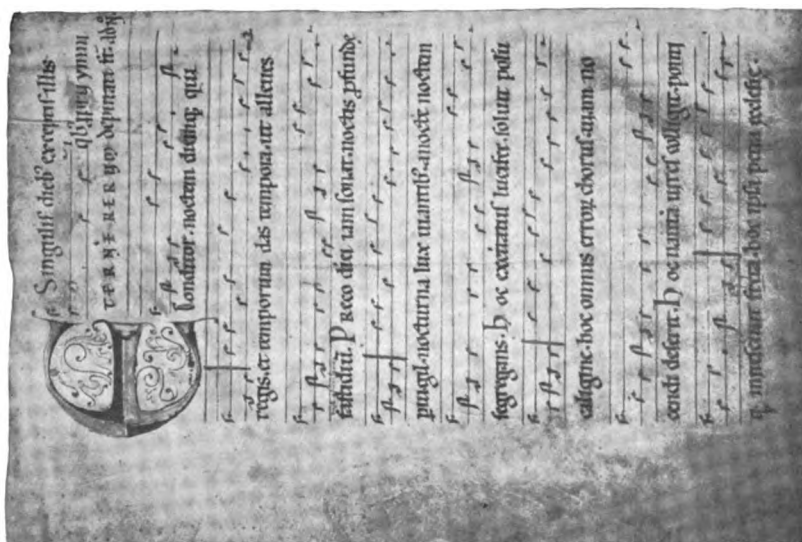 Singulis dieb; exceptis illis
ymni
E TERNE RERUM deputati
Conditor. noctem diemq; qui
regis. et temporum das tempora. ut alleues
fastidiū. PReco diei iam sonat. noctis pfunde
puigil. nocturna lux uiantib;. a nocte noctem
segregans. hoc excitatus lucifer. soluit polū
caligine. hoc omnis errorū chorus. uiam no
cendi deserit. hoc nauta uires colligit. ponti
q; mitescunt freta. hoc ipsa petra ecclesie.